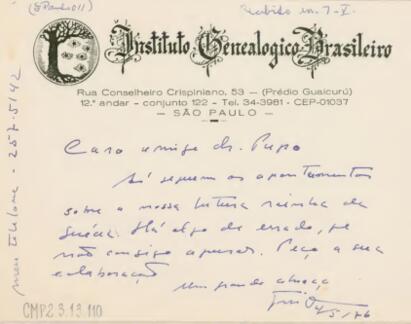 (S. Paulo)
Recebido em 7-V.
Instituto Genealogico Brasileiro
Rua Conselheiro Crispiniano, 53 — (Prédio Guaicurú)
12.º andar - conjunto 122 - Tel. 34-3981 - CEP-01037
— SÃO PAULO —
Caro amigo dr. Pupo
Aí seguem os apontamentos
sobre a nossa futura rainha da
Suécia. Há algo de errado, que
não consigo apurar. Peço a sua
colaboração
Um grande abraço
4/5/76
meu telefone - 257.5142
CMP 2.3.13.110